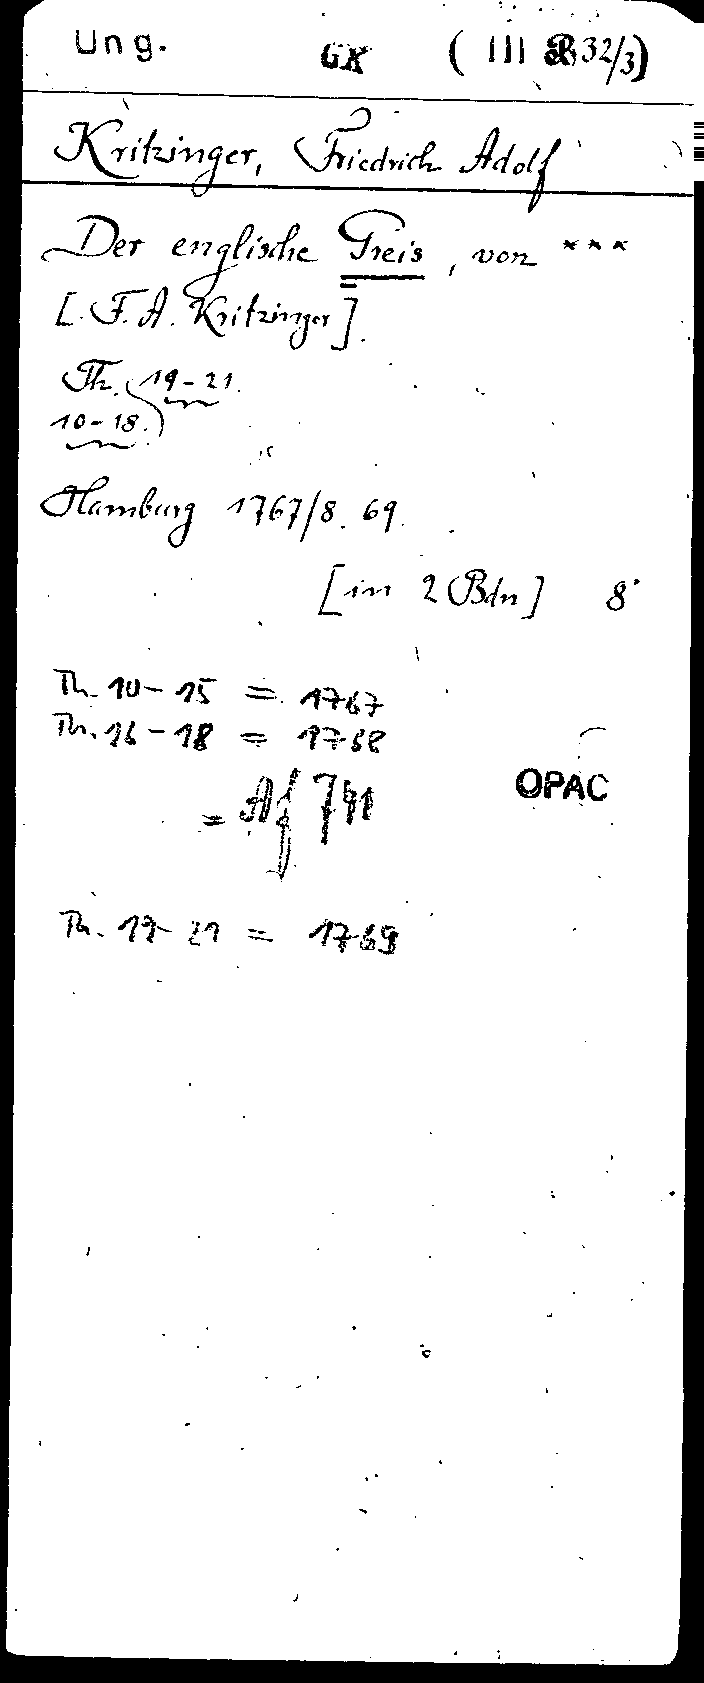 Ung. GK ( III B 32/3)
Kritzinger, Friedrich Adolf
Der englische Greis, von ***
[F. A. Kritzinger].
Th. 19-21.
10-18.
Hamburg 1767/8. 69.
[in 2 Bdn] 8°
Th. 10-15 = 1767
Th. 16-18 = 1768
= Af 741
OPAC
Th. 19-21 = 1769